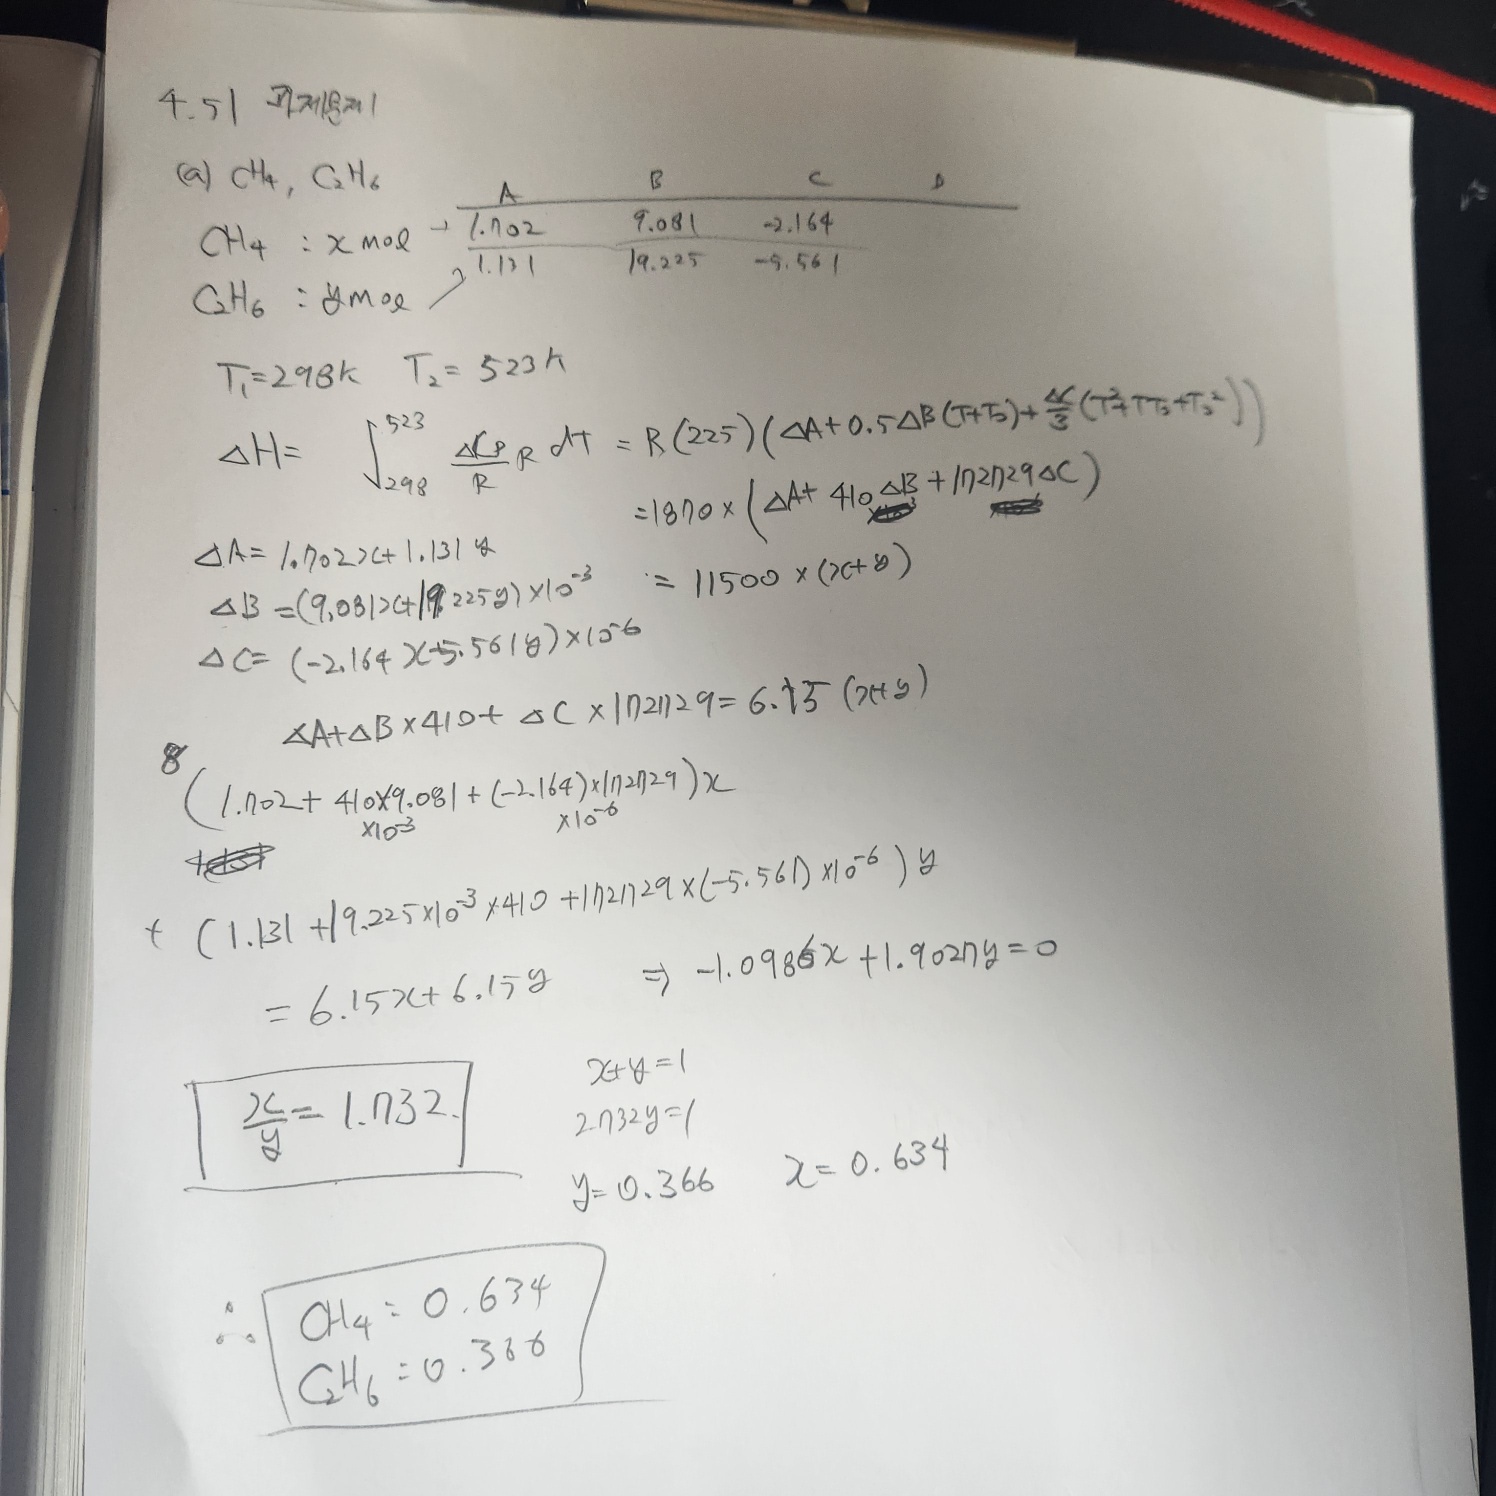 4.51 과제문제
(a) CH4, C2H6
A B C D
CH4 : x mol → 1.702 9.081 -2.164
1.131 19.225 -5.561
C2H6 : y mol
T1=298K T2=523K
ΔH= ∫298^523 ΔCp/R R dT = R(225)(ΔA+0.5ΔB(T+T0)+ΔC/3(T²+TT0+T0²))
=1870×(ΔA+410ΔB+172729ΔC)
ΔA=1.702x+1.131y
ΔB=(9.081x+19.225y)×10^-3 = 11500×(x+y)
ΔC=(-2.164x-5.561y)×10^-6
ΔA+ΔB×410+ΔC×172729=6.15(x+y)
(1.702+410×9.081+(-2.164)×172729)x
×10^-3 ×10^-6
+(1.131+19.225×10^-3×410+172729×(-5.561)×10^-6)y
=6.15x+6.15y ⇒ -1.0986x+1.9027y=0
x/y=1.732.
x+y=1
2.732y=1
y=0.366 x=0.634
∴ CH4=0.634
C2H6=0.366